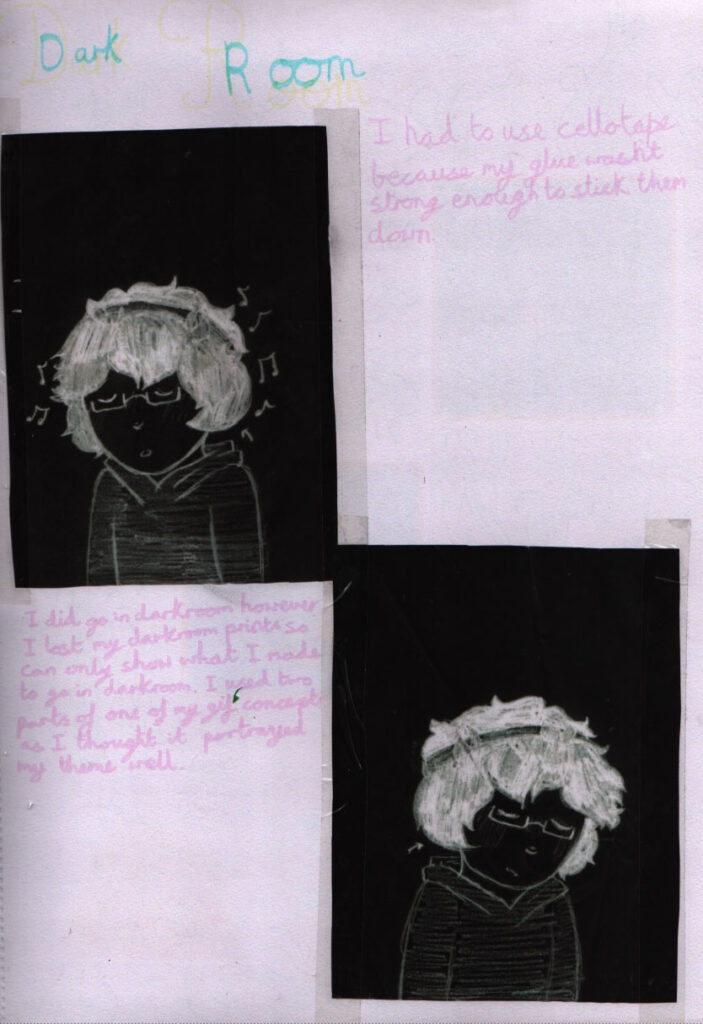 Dark Room
I had to use cellotape
because my glue wasn't
strong enough to stick them
down.
I did go in darkroom however
I lost my darkroom prints so
can only show what I made
to go in darkroom. I used two
parts of one of my gif concepts
as I thought it portrayed
my theme well.